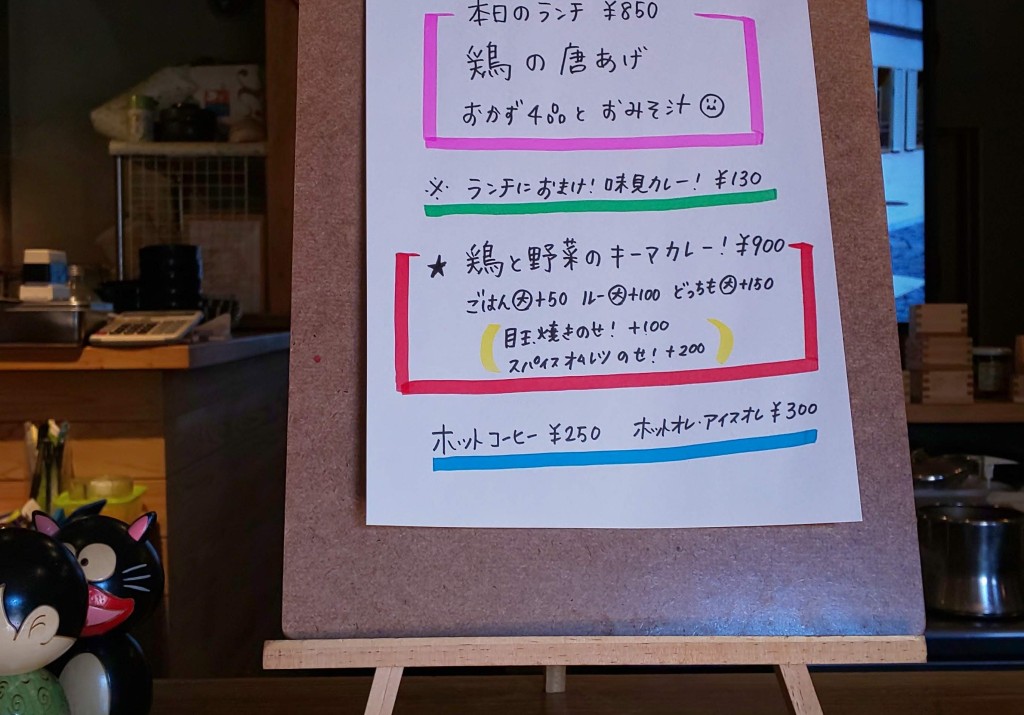 本日のランチ ¥850
鶏の唐あげ
おかず4品とおみそ汁
※ ランチにおまけ!味見カレー! ¥130
★ 鶏と野菜のキーマカレー!¥900
ごはん大+50 ルー大+100 どっちも大+150
目玉焼きのせ! +100
スパイスオムレツのせ! +200
ホットコーヒー ¥250 ホットオレ・アイスオレ ¥300